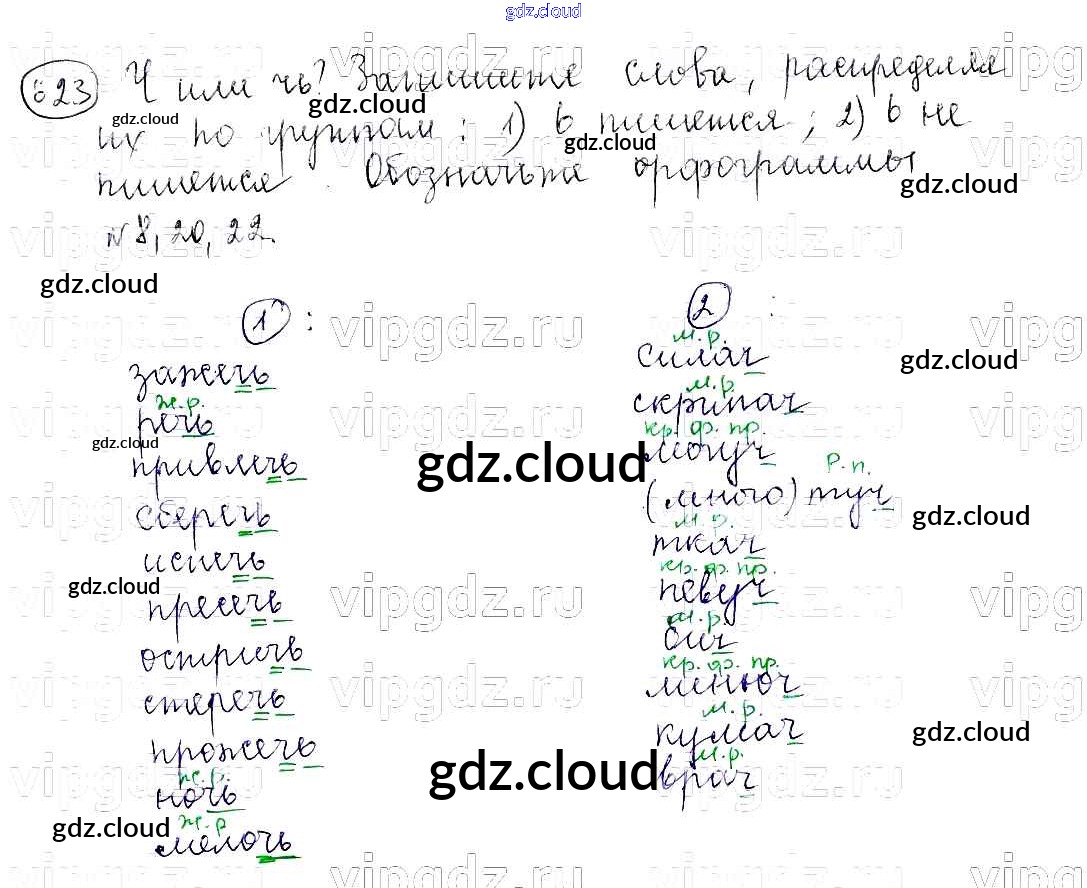 gdz.cloud
623 Ч или чь? Запишите слова, распределяя
их по группам: 1) ь пишется; 2) ь не
пишется. Обозначьте орфограммы
№ 8, 20, 22.
1:
зажечь
ж.р.
речь
привлечь
сберечь
испечь
пресечь
остричь
стеречь
прожечь
ж.р.
ночь
ж.р
мелочь
2:
м.р.
силач
м.р.
скрипач
кр. ф. пр.
могуч
Р.п.
(много) туч
м.р.
ткач
кр. ф. пр.
певуч
м.р.
бич
кр. ф. пр.
линюч
м.р.
кумач
м.р.
врач
gdz.cloud
gdz.cloud
gdz.cloud
gdz.cloud
gdz.cloud
gdz.cloud
gdz.cloud
gdz.cloud
gdz.cloud
gdz.cloud
gdz.cloud
gdz.cloud
gdz.cloud
vipgdz.ru
vipgdz.ru
vipgdz.ru
vipgdz.ru
vipgdz.ru
vipgdz.ru